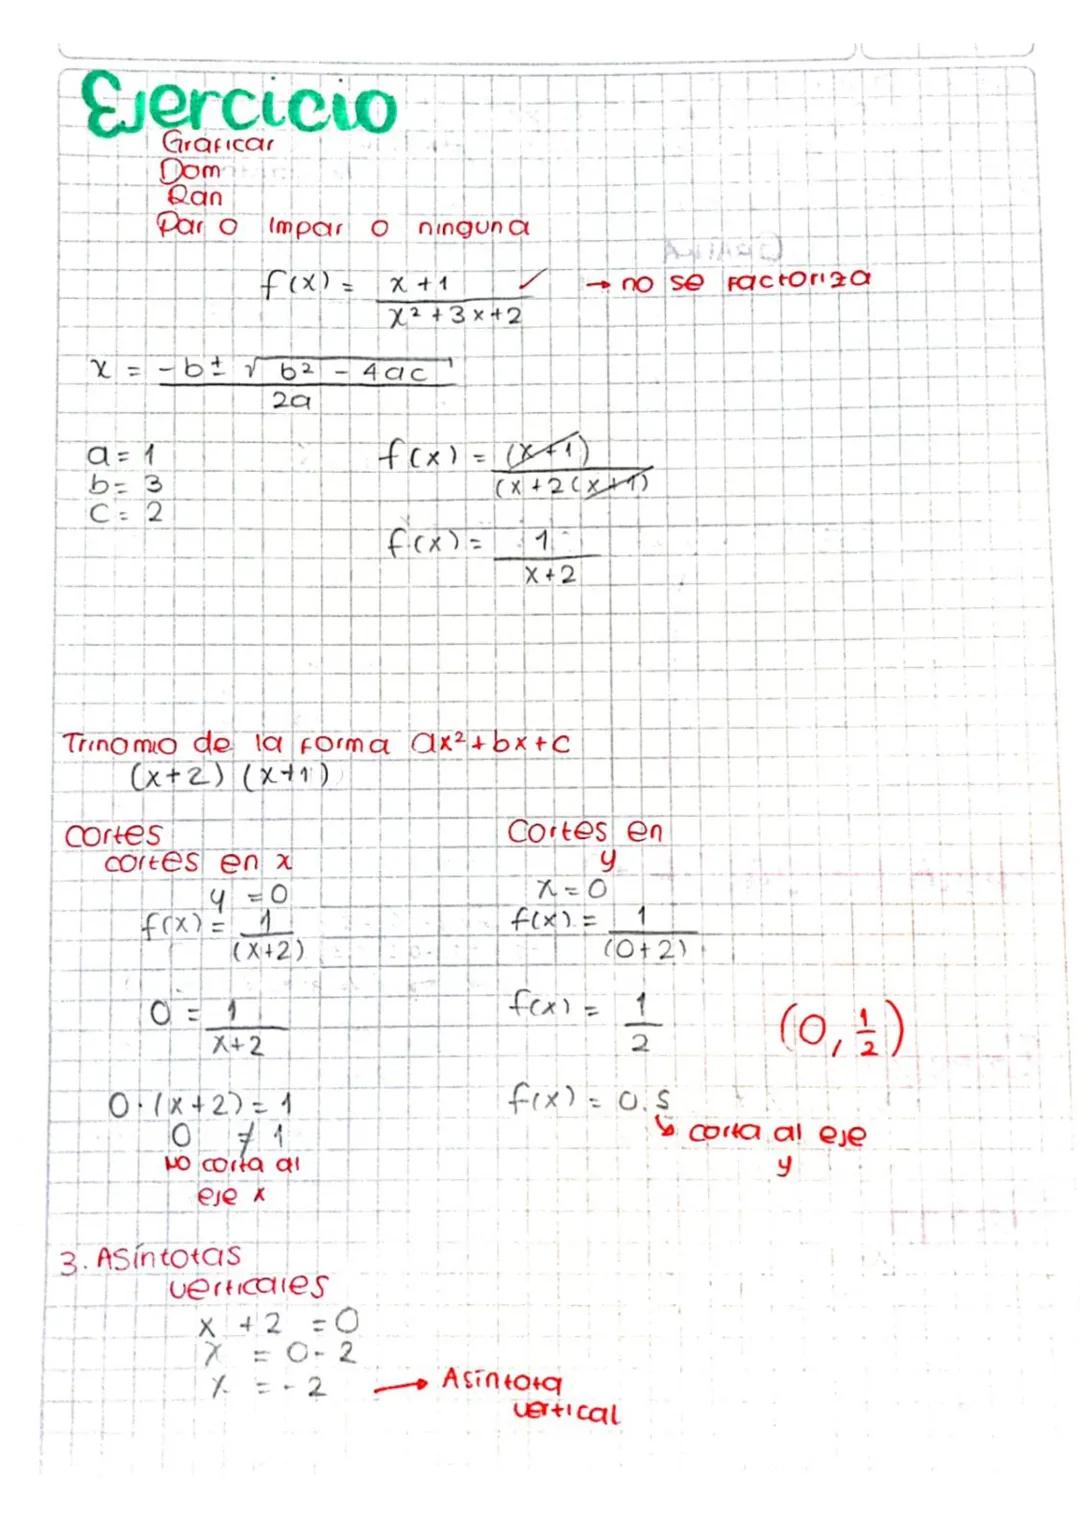 Ejercicio
Graficar
Dom
Ran
Par o impar o ninguna
f(x) = x+1 / x²+3x+2 ✓ → no se factoriza
x = -b ± √b² - 4ac / 2a
a = 1
b = 3
c = 2
f(x) = (x+1) / (x+2(x+1)
f(x) = 1 / x+2
Trinomio de la forma ax²+bx+c
(x+2) (x+1)
cortes
cortes en x
y = 0
f(x) = 1 / (x+2)
0 = 1 / x+2
0·(x+2) = 1
0 ≠ 1
No corta al
eje x
Cortes en
y
x = 0
f(x) = 1 / (0+2)
f(x) = 1 / 2
(0, 1/2)
f(x) = 0.5
↳ corta al eje
y
3. Asíntotas
verticales
x + 2 = 0
x = 0 - 2
x = -2 → Asíntota
vertical